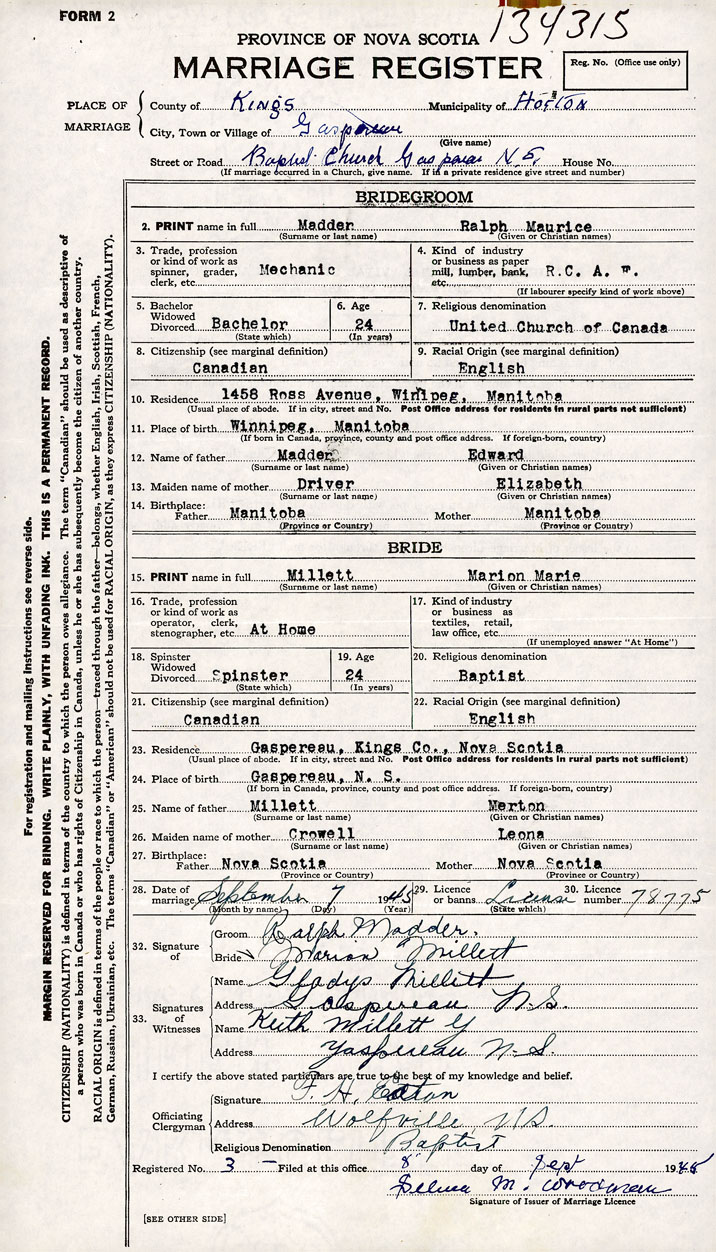 FORM 2
134315
PROVINCE OF NOVA SCOTIA
MARRIAGE REGISTER
Reg. No. (Office use only)
PLACE OF MARRIAGE
County of Kings Municipality of Horton
City, Town or Village of Gaspereau
(Give name)
Street or Road Baptist Church Gaspereau N.S. House No.
(If marriage occurred in a Church, give name. If in a private residence give street and number)
BRIDEGROOM
2. PRINT name in full Madder Ralph Maurice
(Surname or last name) (Given or Christian names)
3. Trade, profession or kind of work as spinner, grader, clerk, etc. Mechanic
4. Kind of industry or business as paper mill, lumber, bank, etc. R.C. A. F.
(If labourer specify kind of work above)
5. Bachelor Widowed Divorced Bachelor
(State which)
6. Age 24
(In years)
7. Religious denomination
United Church of Canada
8. Citizenship (see marginal definition)
Canadian
9. Racial Origin (see marginal definition)
English
10. Residence 1458 Ross Avenue, Winlpeg, Manitoba
(Usual place of abode. If in city, street and No. Post Office address for residents in rural parts not sufficient)
11. Place of birth Winnipeg, Manitoba
(If born in Canada, province, county and post office address. If foreign-born, country)
12. Name of father Madder Edward
(Surname or last name) (Given or Christian names)
13. Maiden name of mother Driver Elizabeth
(Surname or last name) (Given or Christian names)
14. Birthplace:
Father Manitoba Mother Manitoba
(Province or Country) (Province or Country)
BRIDE
15. PRINT name in full Millett Marion Marie
(Surname or last name) (Given or Christian names)
16. Trade, profession or kind of work as operator, clerk, stenographer, etc. At Home
17. Kind of industry or business as textiles, retail, law office, etc.
(If unemployed answer "At Home")
18. Spinster Widowed Divorced Spinster
(State which)
19. Age 24
(In years)
20. Religious denomination
Baptist
21. Citizenship (see marginal definition)
Canadian
22. Racial Origin (see marginal definition)
English
23. Residence Gaspereau, Kings Co., Nova Scotia
(Usual place of abode. If in city, street and No. Post Office address for residents in rural parts not sufficient)
24. Place of birth Gaspereau, N. S.
(If born in Canada, province, county and post office address. If foreign-born, country)
25. Name of father Millett Merton
(Surname or last name) (Given or Christian names)
26. Maiden name of mother Crowell Leona
(Surname or last name) (Given or Christian names)
27. Birthplace:
Father Nova Scotia Mother Nova Scotia
(Province or Country) (Province or Country)
28. Date of marriage September 7 1945
(Month by name) (Day) (Year)
29. Licence or banns License
(State which)
30. Licence number 78775
32. Signature of
Groom Ralph Madder.
Bride Marion Millett
33. Signatures of Witnesses
Name Gladys Millett
Address Gaspereau N.S.
Name Keith Millett
Address Gaspereau N.S.
I certify the above stated particulars are true to the best of my knowledge and belief.
Officiating Clergyman
Signature F. H. Eaton
Address Wolfville, N.S.
Religious Denomination Baptist
Registered No. 3 - Filed at this office 8 day of Sept 1945
Selena M. Woodman
Signature of Issuer of Marriage Licence
[SEE OTHER SIDE]
For registration and mailing instructions see reverse side.
MARGIN RESERVED FOR BINDING. WRITE PLAINLY, WITH UNFADING INK. THIS IS A PERMANENT RECORD.
CITIZENSHIP (NATIONALITY) is defined in terms of the country to which the person owes allegiance. The term "Canadian" should be used as descriptive of
a person who was born in Canada or who has rights of Citizenship in Canada, unless he or she has subsequently become the citizen of another country.
RACIAL ORIGIN is defined in terms of the people or race to which the person—traced through the father—belongs, whether English, Irish, Scottish, French,
German, Russian, Ukrainian, etc. The terms "Canadian" or "American" should not be used for RACIAL ORIGIN, as they express CITIZENSHIP (NATIONALITY).